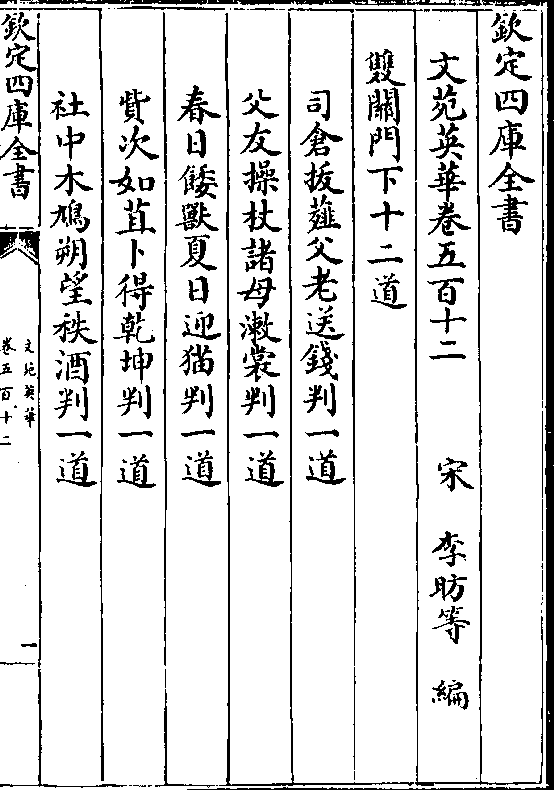 欽定四庫全書
文苑英華卷五百十二　宋　李昉等　編
雙關門下十二道
司倉拔薤父老送錢判一道
父友操杖諸母漱裳判一道
春日餧獸夏日迎猫判一道
貲次如苴卜得乾坤判一道
社中木鳩朔望秩酒判一道
欽定四庫全書
文苑英華
卷五百十二
一